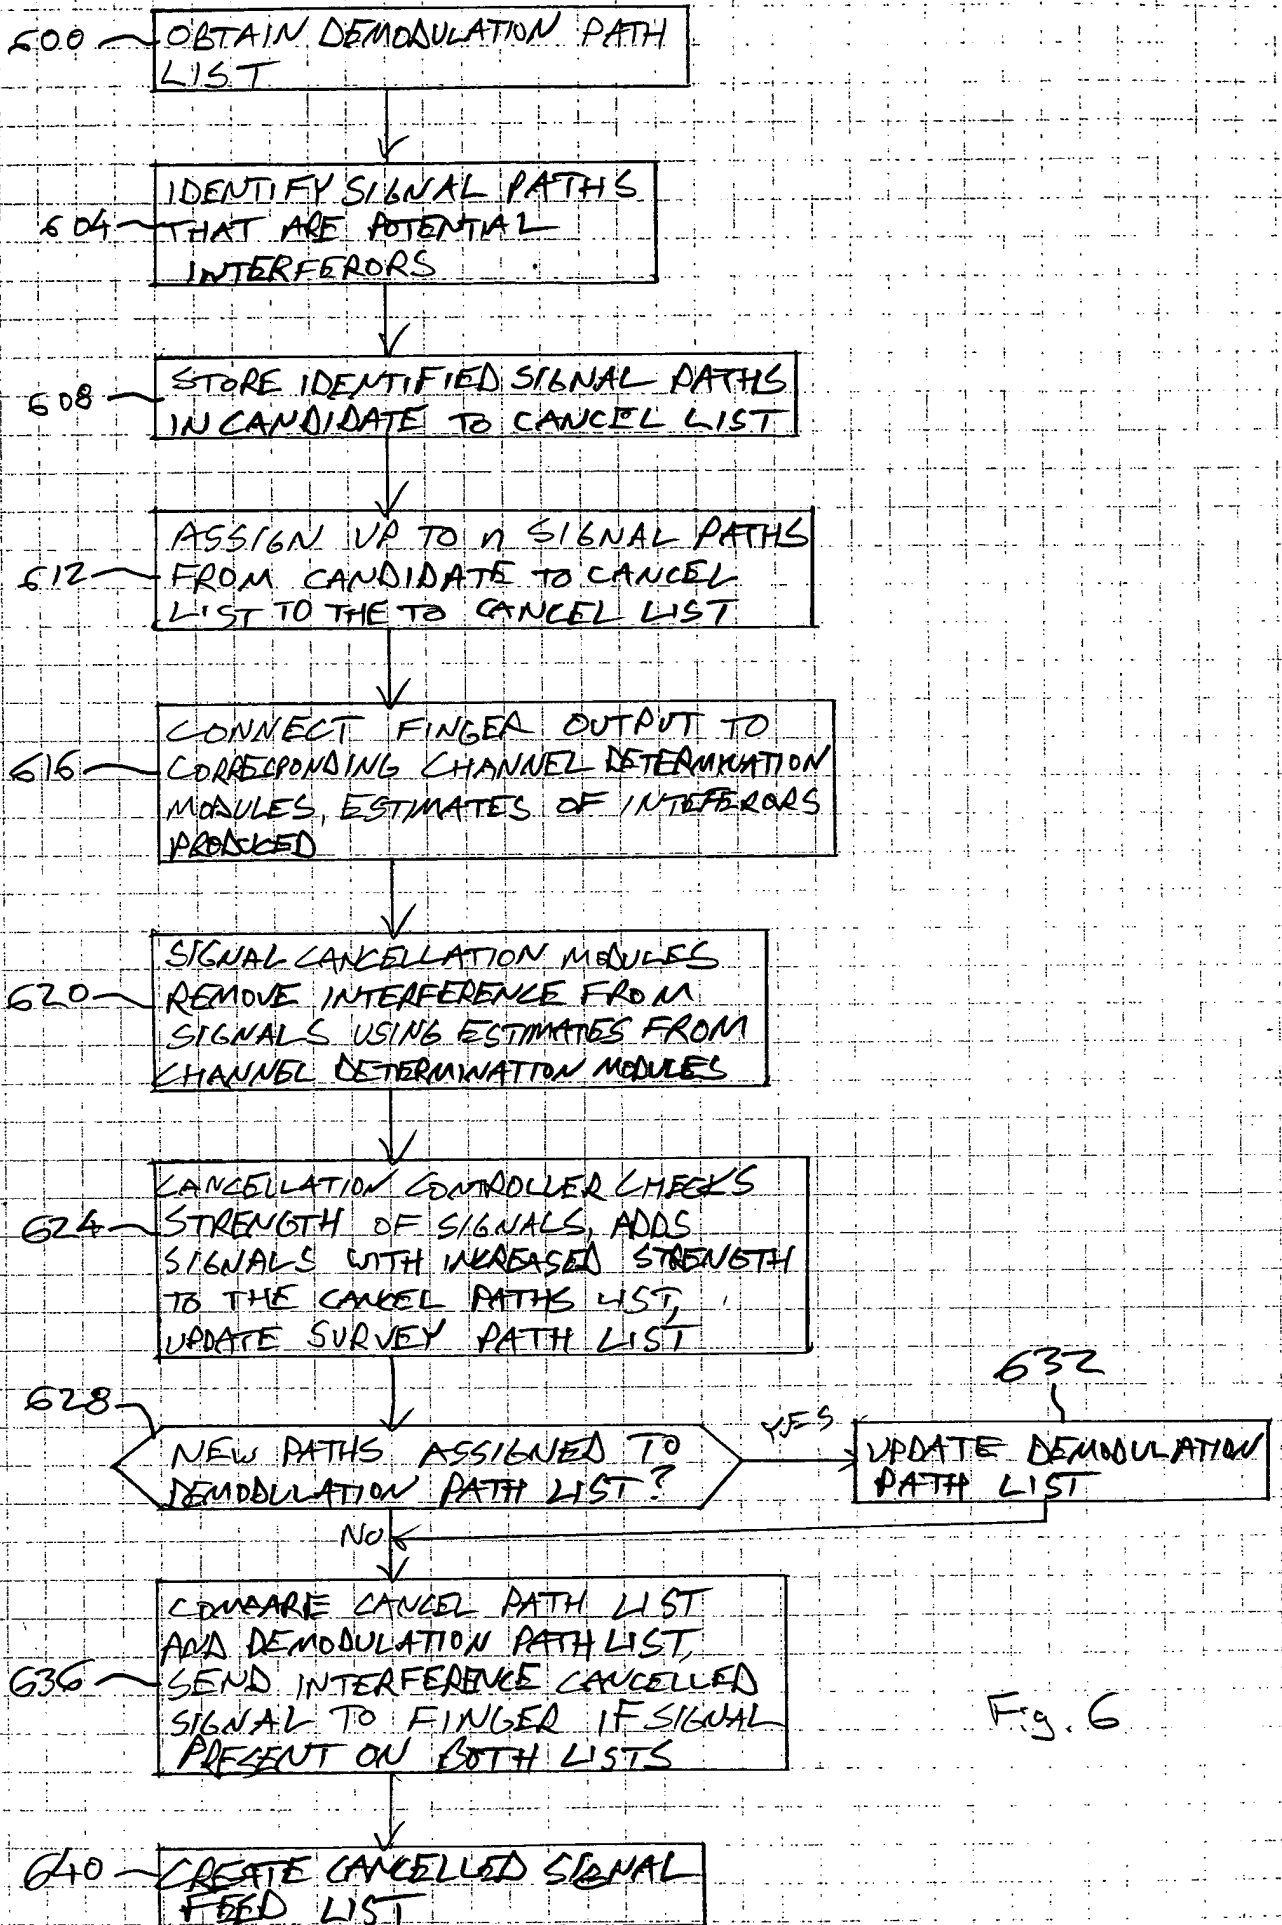 600
OBTAIN DEMODULATION PATH
LIST
604
IDENTIFY SIGNAL PATHS
THAT ARE POTENTIAL
INTERFERORS
608
STORE IDENTIFIED SIGNAL PATHS
IN CANDIDATE TO CANCEL LIST
612
ASSIGN UP TO n SIGNAL PATHS
FROM CANDIDATE TO CANCEL
LIST TO THE TO CANCEL LIST
616
CONNECT FINGER OUTPUT TO
CORRESPONDING CHANNEL DETERMINATION
MODULES, ESTIMATES OF INTEFERORS
PRODUCED
620
SIGNAL CANCELLATION MODULES
REMOVE INTERFERENCE FROM
SIGNALS USING ESTIMATES FROM
CHANNEL DETERMINATION MODULES
624
CANCELLATION CONTROLLER CHECKS
STRENGTH OF SIGNALS, ADDS
SIGNALS WITH INCREASED STRENGTH
TO THE CANCEL PATHS LIST,
UPDATE SURVEY PATH LIST
628
NEW PATHS ASSIGNED TO
DEMODULATION PATH LIST?
YES
632
UPDATE DEMODULATION
PATH LIST
NO
636
COMPARE CANCEL PATH LIST
AND DEMODULATION PATH LIST,
SEND INTERFERENCE CANCELLED
SIGNAL TO FINGER IF SIGNAL
PRESENT ON BOTH LISTS
Fig. 6
640
CREATE CANCELLED SIGNAL
FEED LIST